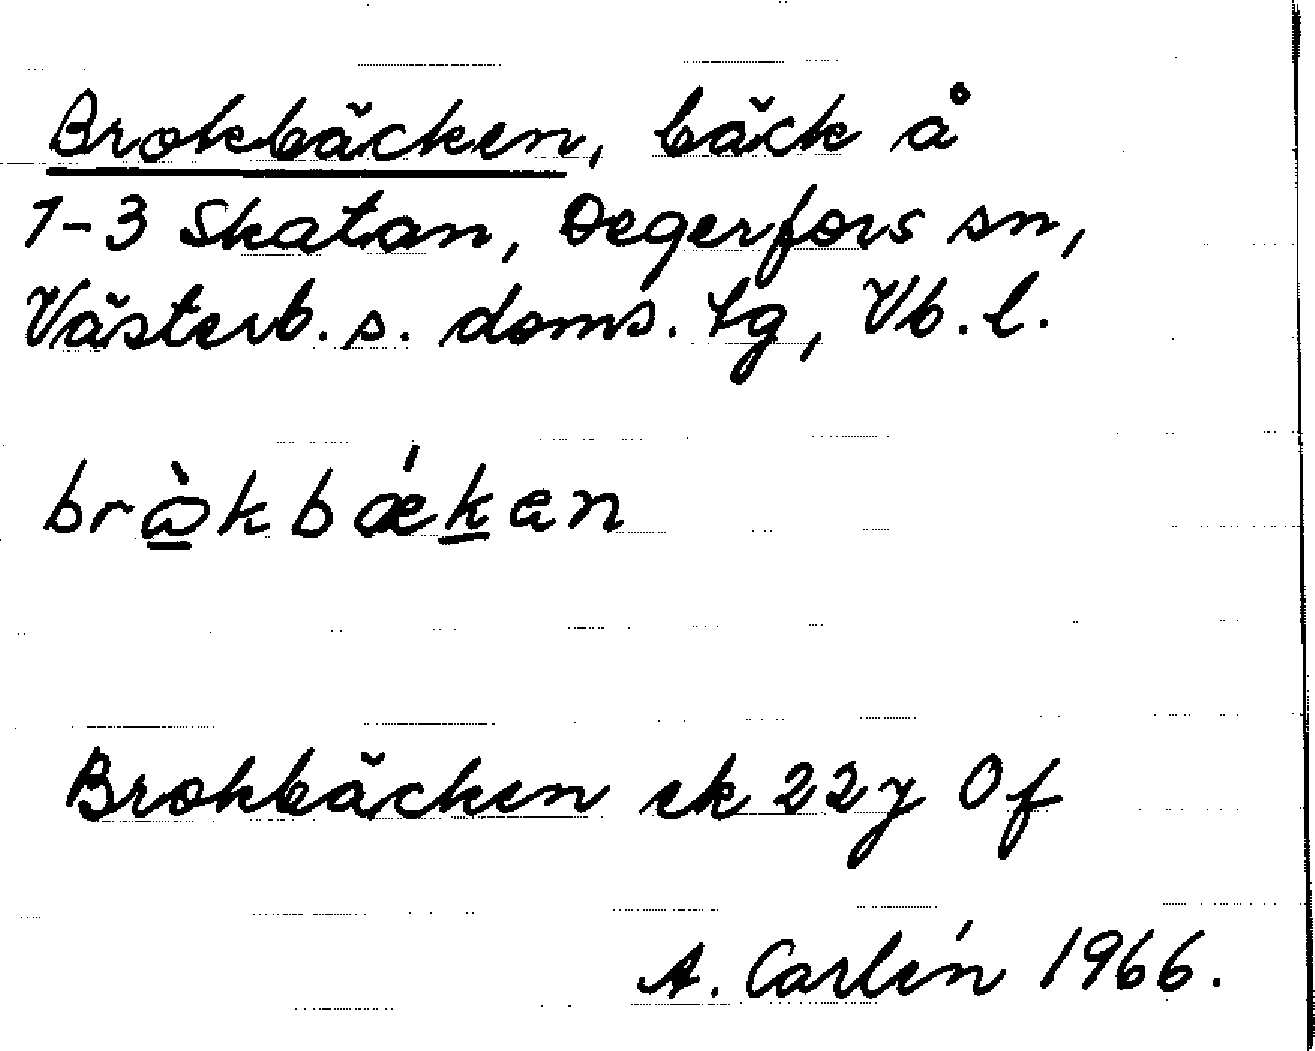 Brokbäcken, bäck å
1-3 Skatan, Degerfors sn,
Västerb. s. doms. tg, Vb. l.
brå̀kbǽkan
Brokbäcken ek 22y Of
A. Carlén 1966.